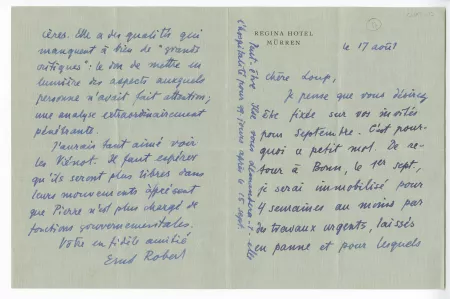 REGINA HOTEL
MÜRREN
le 17 août
Chère Loup,
Je pense que vous désirez
être fixée sur vos invités
pour septembre. C'est pour-
quoi ce petit mot. De re-
tour à Bonn, le 1er sept.,
je serai immobilisé pour
4 semaines au moins par
des travaux urgents, laissés
en panne et pour lesquels
Peut-être Ilse vous demandera-t-elle
l'hospitalité pour jours après le 15 sept.
cères. Elle a des qualités qui
manquent à bien de "grands
critiques": le don de mettre en
lumière des aspects auxquels
personne n'avait fait attention;
une analyse extraordinairement
pénétrante.
J'aurais tant aimé voir
les Viénot. Il faut espérer
qu'ils seront plus libres dans
leurs mouvements à présent
que Pierre n'est plus chargé de
fonctions gouvernementales.
Votre en fidèle amitié
Ernst Robert